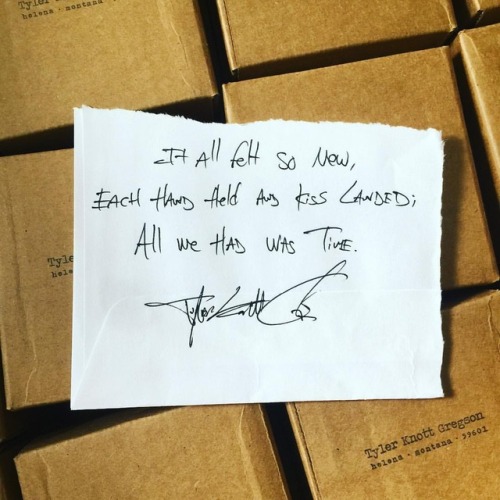 Tyler Knott Gregson
helena · montana ·
It All felt so New,
Each Hand Held And Kiss Landed;
All we Had was Time.
Tyle
hele
Tyler Knott Gregson
helena · montana · 59601